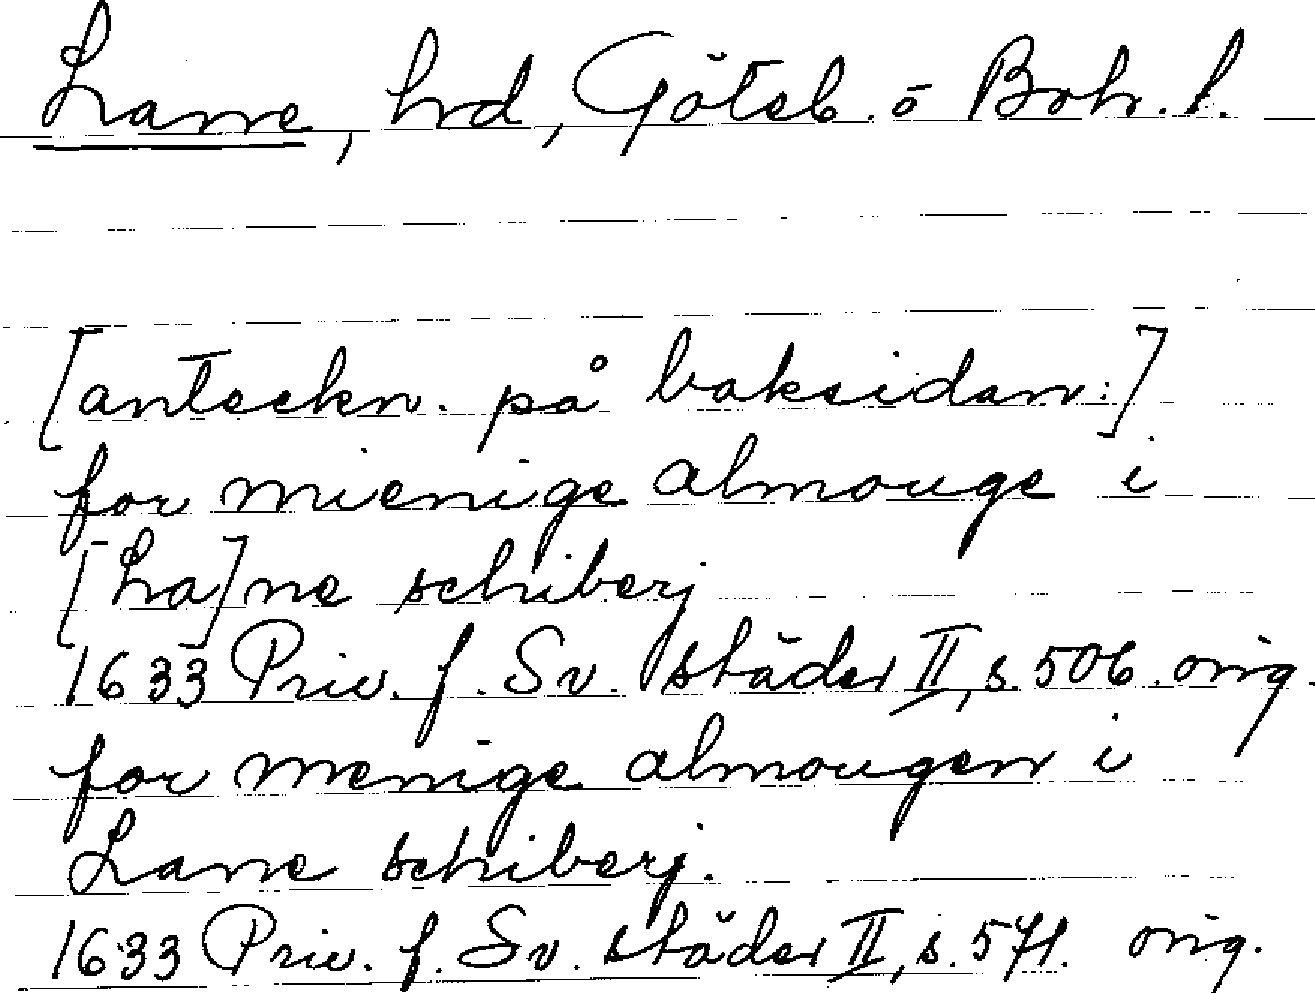 Lane, hrd, Göteb. o Boh. l.
[anteckn. på baksidan:]
for mienige almouge i
[La]ne schiberj
1633 Priv. f. Sv. städer II, s. 506. orig.
for menige almougen i
Lane schiberj.
1633 Priv. f. Sv. städer II, s. 571. orig.